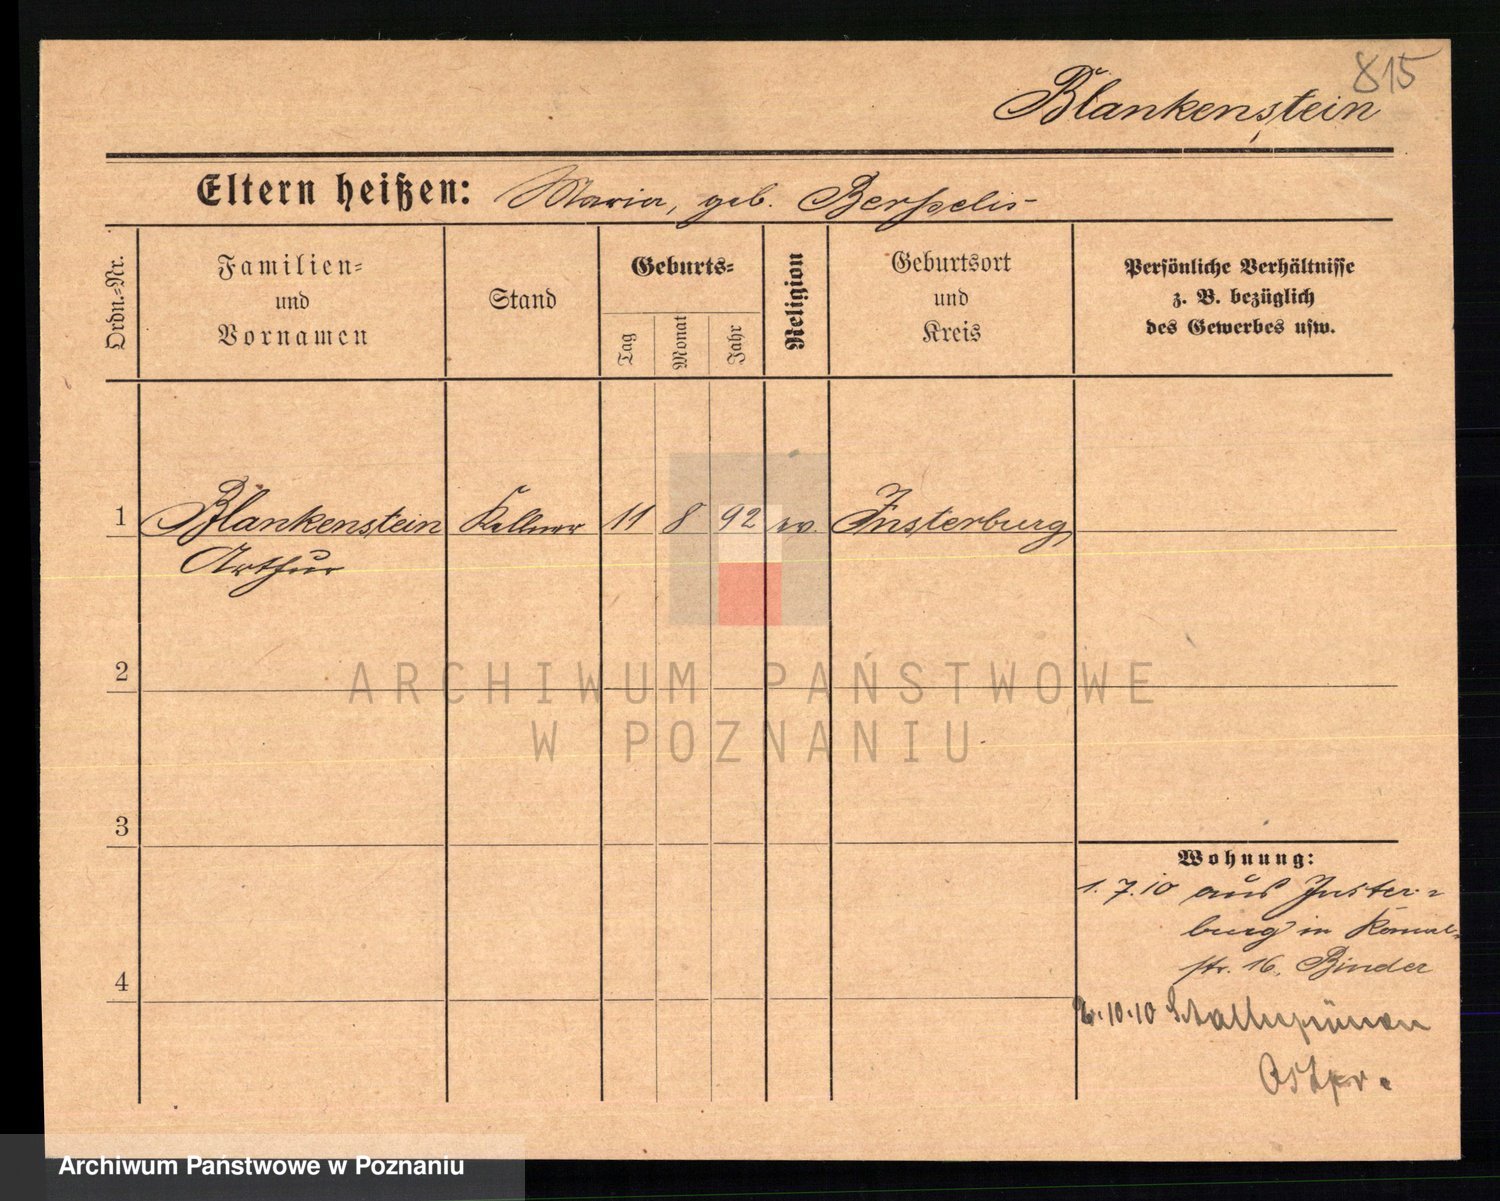 815
Blankenstein
Eltern heißen: Maria, geb.
Ordn.-Nr.
Familien-
und
Vornamen
Stand
Geburts-
Tag
Monat
Jahr
Religion
Geburtsort
und
Kreis
Persönliche Verhältnisse
z. B. bezüglich
des Gewerbes usw.
1 Blankenstein Kellner 11 8 92 ev. Insterburg
Arthur
2
3
4
Wohnung:
1.7.10 aus Inster-
burg in
str. 16, Binder
10.10 Stallupönen
Ostpr.
ARCHIWUM PAŃSTWOWE
W POZNANIU
Archiwum Państwowe w Poznaniu